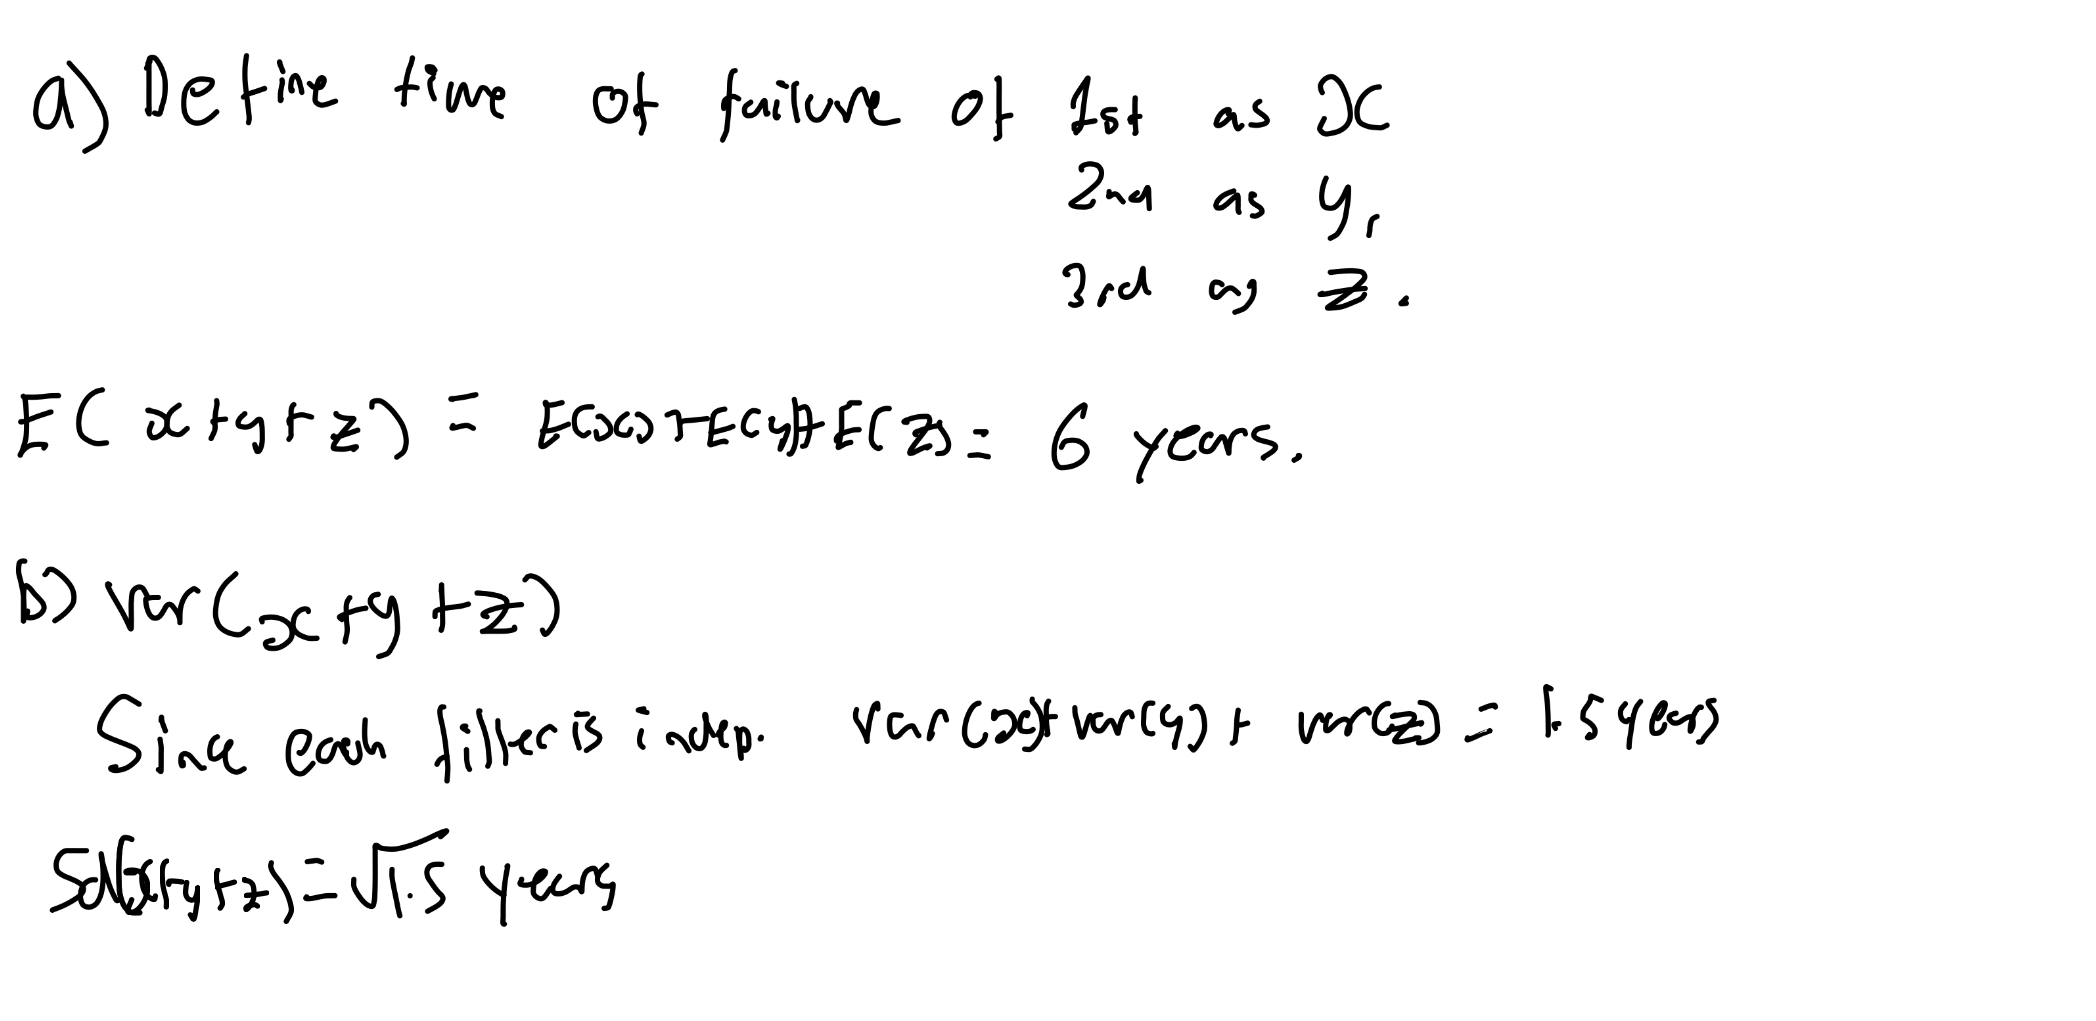 a) Define time of failure of 1st as x
2nd as y,
3rd as z.
E(x+y+z) = E(x)+E(y)+E(z) = 6 years.
b) var(x+y+z)
Since each filter is indep. var(x)+var(y)+var(z) = 1.5 years
Sd(x+y+z) = √1.5 years